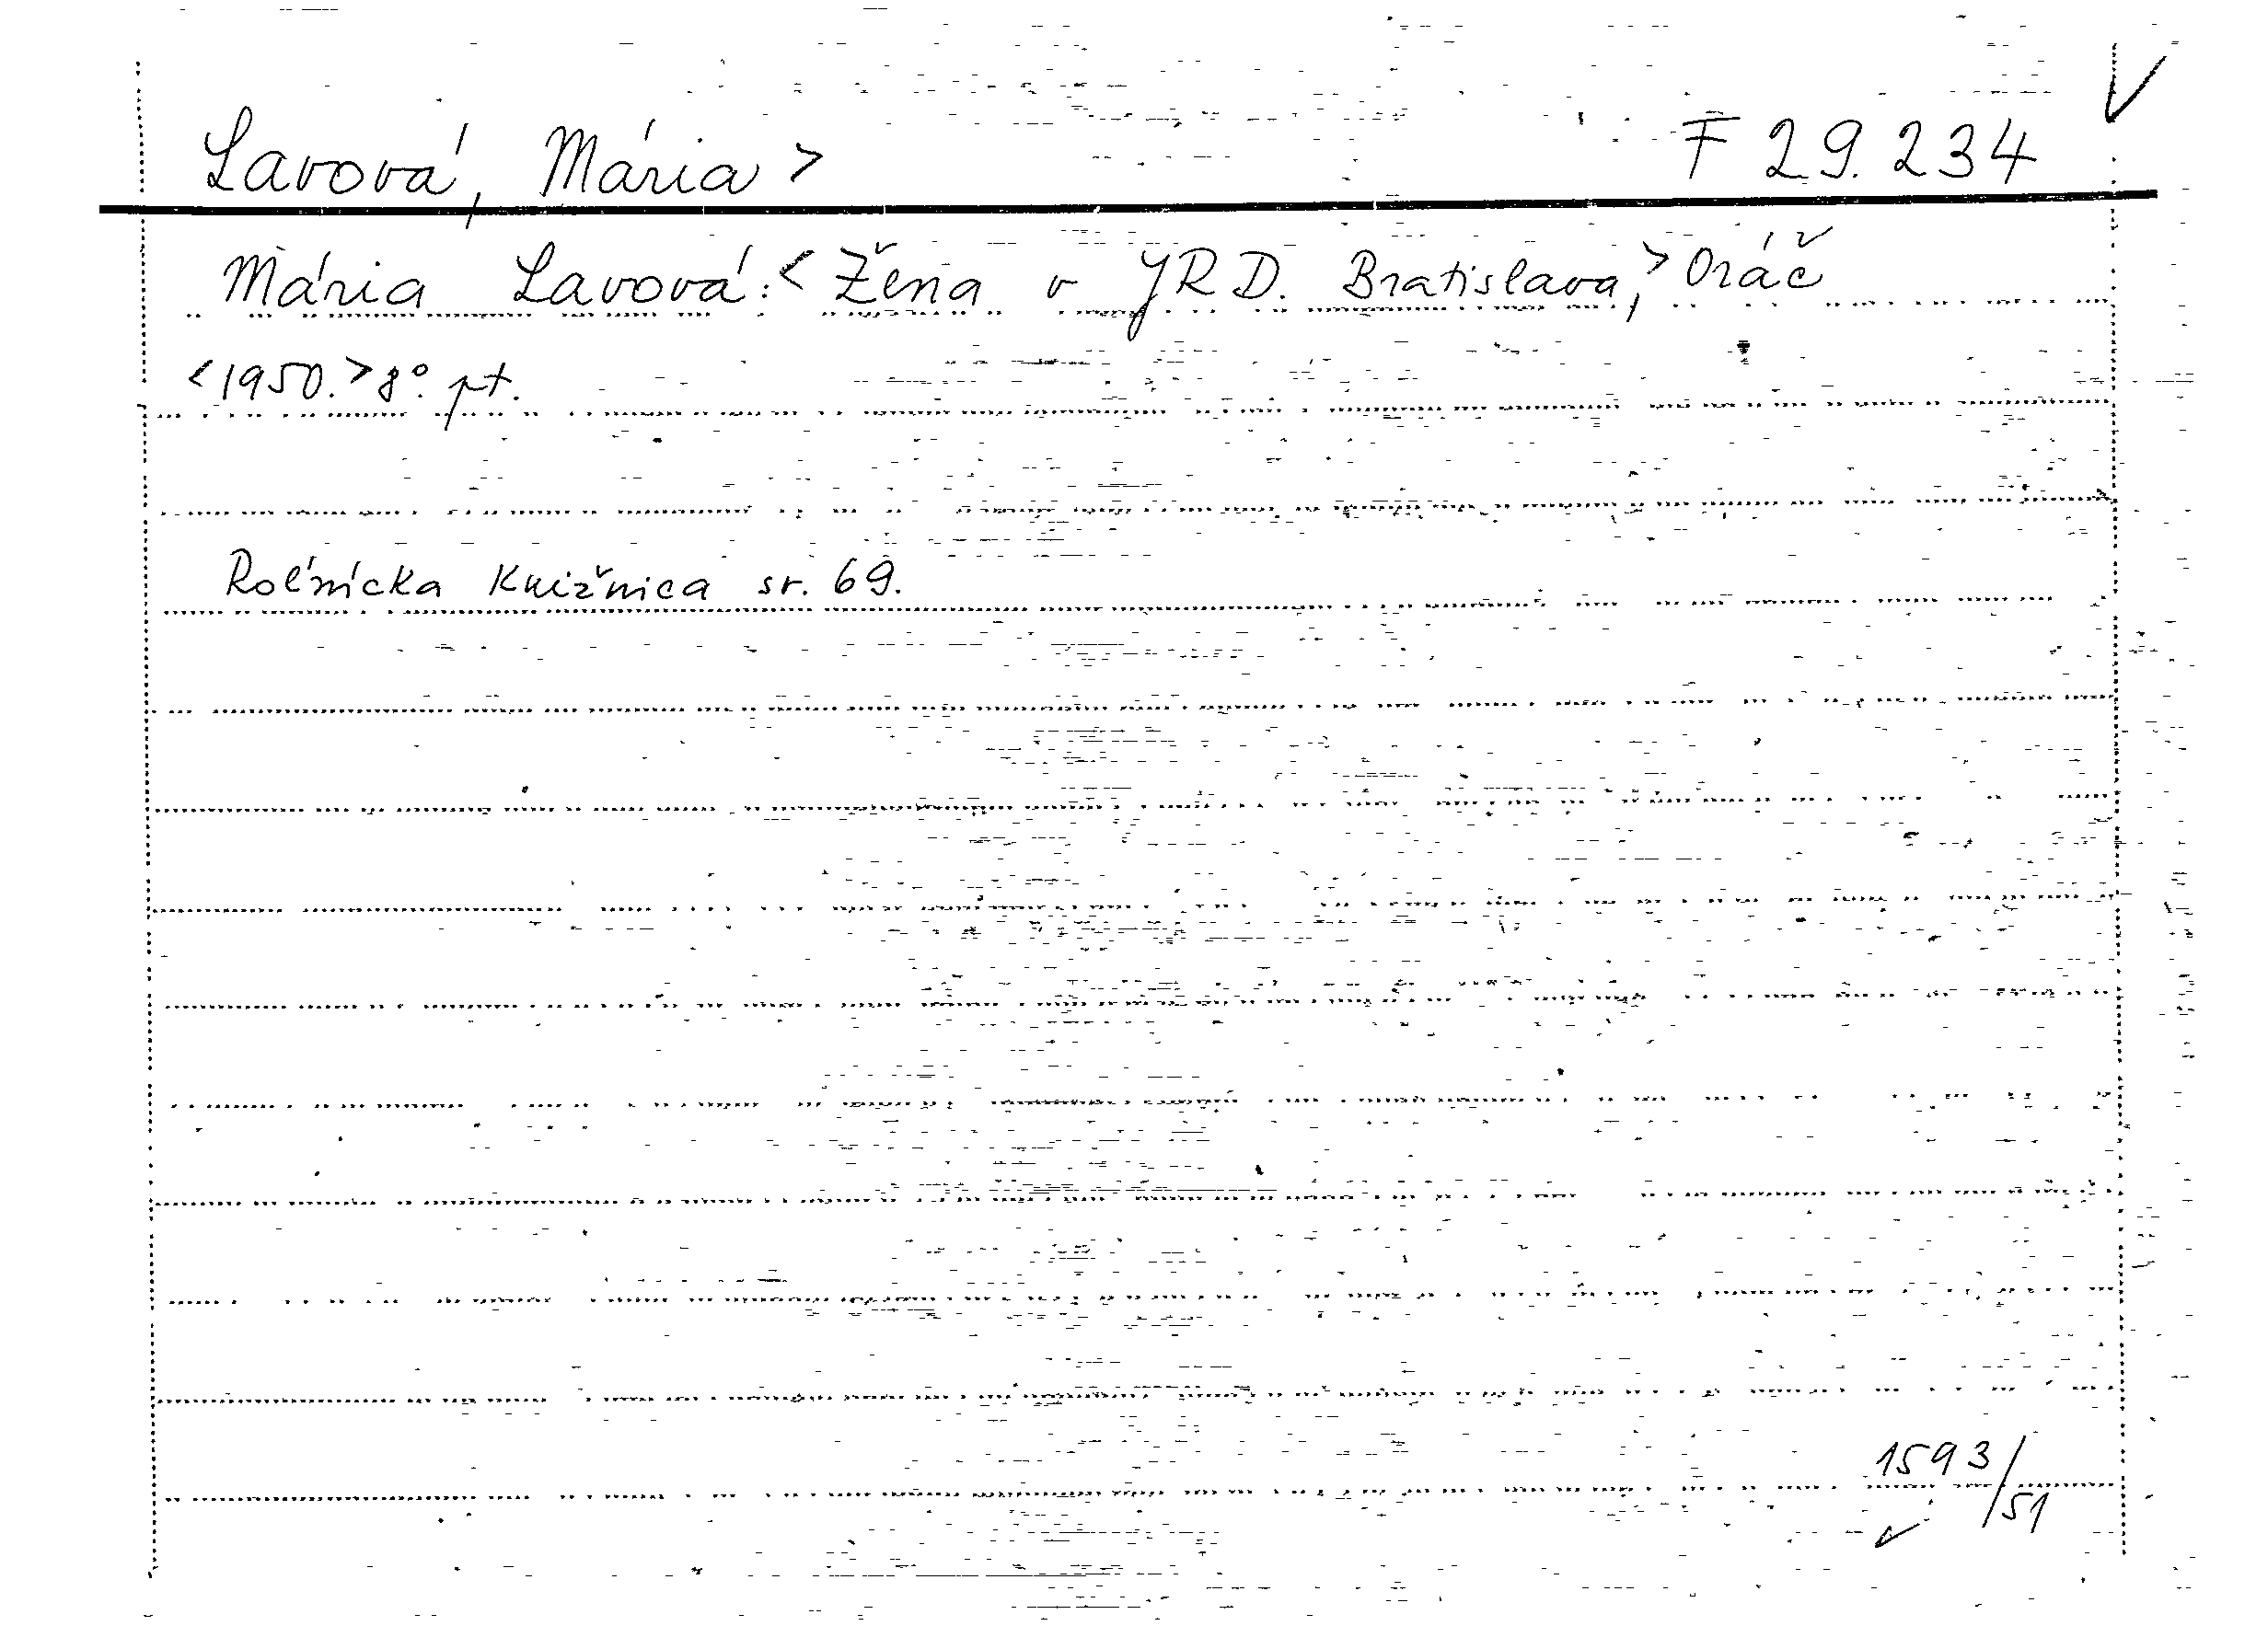 Lavová, Mária > F 29.234
Mária Lavová: < Žena v JRD. Bratislava, > Oráč
<1950.> 8° pt.
Roľnícka Knižnica sr. 69.
1593/51